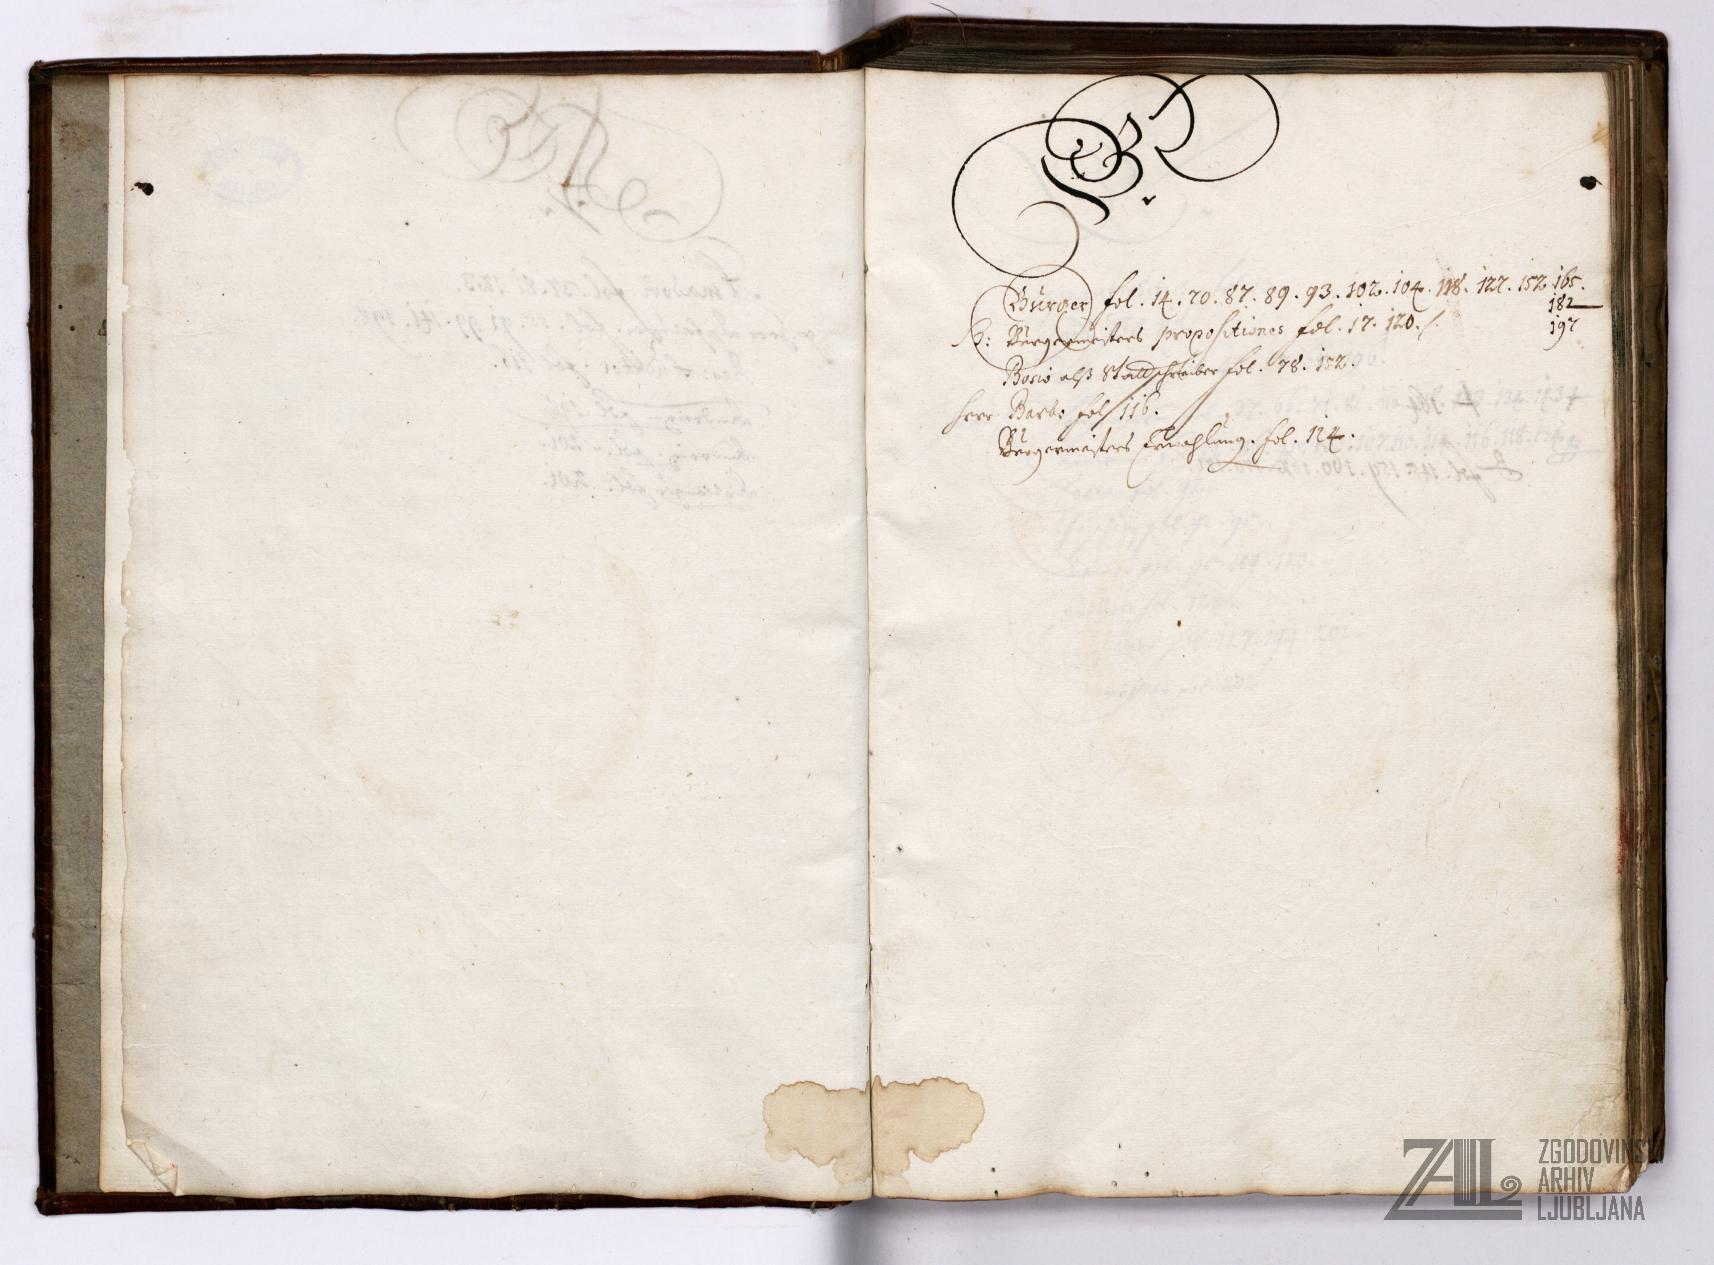 B.
Bürger fol. 14. 70. 87. 89. 93. 102. 104. 118. 122. 152. 165.
182
H: Bürgermeisters propositiones fol. 17. 120. /.
197
Bosio alß Stattschreiber fol. 78. 152.
herr Barbo fol. 116.
Bürgermeisters Erwahlung. fol. 124.
ZAL ZGODOVINSKI
ARHIV
LJUBLJANA